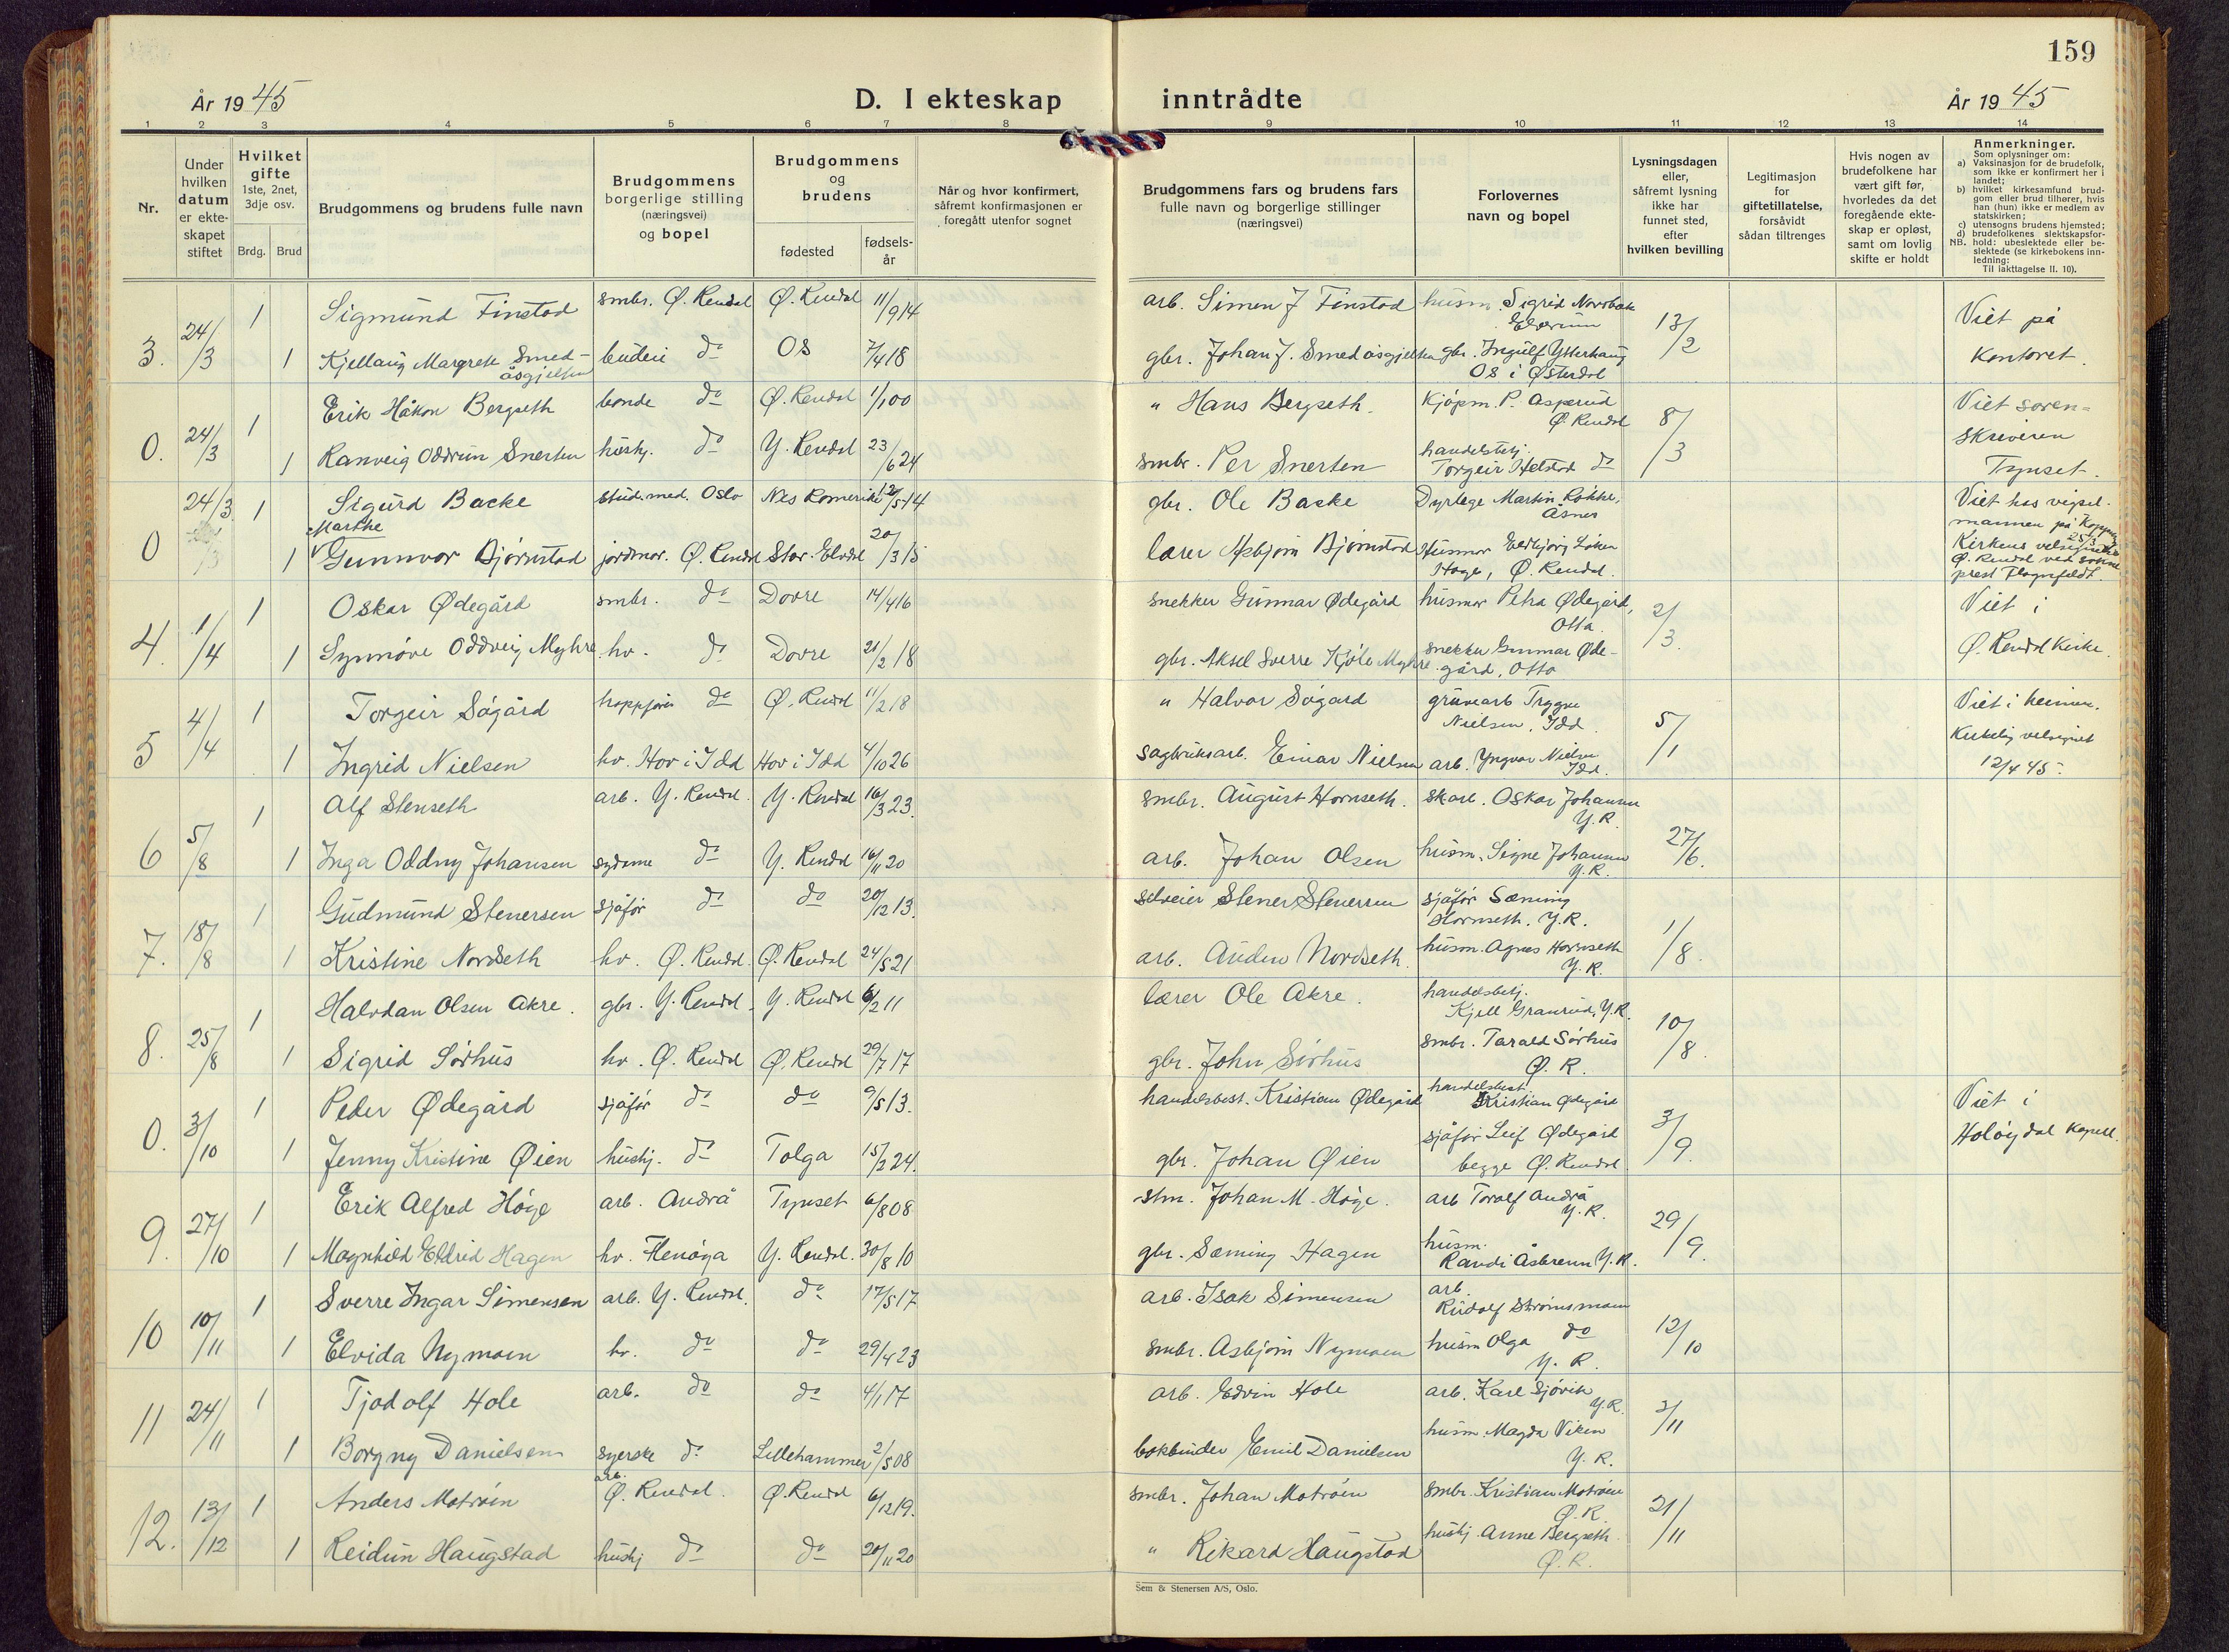 159
År 1945
D. I ekteskap inntrådte
År 1945
1 2 3 4 5 6 7 8 9 10 11 12 13 14
Nr.
Under hvilken datum er ekteskapet stiftet
Hvilket gifte
1ste, 2net, 3dje osv.
Brdg. Brud
Brudgommens og brudens fulle navn
Brudgommens borgerlige stilling (næringsvei) og bopel
Brudgommens og brudens
fødested
fødsels-år
Når og hvor konfirmert, såfremt konfirmasjonen er foregått utenfor sognet
Brudgommens fars og brudens fars fulle navn og borgerlige stillinger (næringsvei)
Forlovernes navn og bopel
Lysningsdagen eller, såfremt lysning ikke har funnet sted, efter hvilken bevilling
Legitimasjon for giftetillatelse, forsåvidt sådan tiltrenges
Hvis nogen av brudefolkene har vært gift før, hvorledes da det foregående ekteskap er opløst, samt om lovlig skifte er holdt
Anmerkninger.
Som oplysninger om:
a) Vaksinasjon for de brudefolk, som ikke er konfirmert her i landet;
b) hvilket kirkesamfund brudgom eller brud tilhører, hvis han (hun) ikke er medlem av statskirken;
c) utensogns brudens hjemsted;
d) brudefolkenes slektskapsforhold: ubeslektede eller beslektede (se kirkebokens innledning:
NB. Til iakttagelse II. 10).
3. 24/3 1 Sigmund Finstad smbr. Ø. Rendal Ø. Rendal 11/9 14 arb. Simen J Finstad husm. Sigrid Elverum 13/2 Viet på
1 Kjellaug Margrete Smedåsgjelten budeie do Os 7/4 18 gbr. Johan J. Smedåsgjelten gbr. Ingulf Ytterhaug Os i Østerdal kontoret.
0. 24/3 1 Erik Håkon Bergseth bonde do Ø. Rendal 1/1 00 " Hans Bergseth. Kjøpm. P. Asperud Ø. Rendal 8/3 Viet soren=
1 Ranveig Oddrun Snerten hushj. do Y. Rendal 23/6 24 smbr. Per Snerten handelsbetj. Torgeir do skriveren Tynset.
0 24/3 1 Sigurd Backe stud. med. Oslo Nes Romerike 12/5 14 gbr. Ole Backe Dyrlege Martin Røkke, Åsnes Viet hos vigsel-mannen på Koppang
1 Marthe Gunnvor Bjørnstad jordmor. Ø. Rendal Stor-Elvdal 20/3 15 lærer Asbjørn Bjørnstad Husmor Eldbjørg Løken Hage, Ø. Rendal. 25/3 Kirkens velsignelse Ø. Rendal ved sokneprest Flagnfeldt.
4. 1/4 1 Oskar Ødegård smbr. do Dovre 14/4 16 snekker Gunnar Ødegård husmor Petra Ødegård, Otta. 2/3. Viet i
1 Synnøve Oddveig Myhre hv. do Dovre 21/2 18 gbr. Aksel Sverre Kjøle Myhre snekker Gunnar Ødegård, Otta Ø. Rendal Kirke.
5 4/4 1 Torgeir Søgård do Ø. Rendal 11/2 18 " Halvor Søgard gruvearb Trygve Nielsen, Idd. 5/1 Viet i heimen.
1 Ingrid Nielsen hv. Hov i Idd Hov i Idd 4/10 26 sagbruksarb. Einar Nielsen arb. Yngvar Nielsen Idd. Kirkelig velsignet 12/4 45.
6 5/8 1 Alf Stenseth arb. Y. Rendal. Y. Rendal 16/3 23. smbr. August Hornseth. skarb. Oskar Johansen Y.R. 27/6.
1 Inga Oddny Johansen sydame do Y. Rendal 16/11 20 arb. Johan Olsen husm. Signe Johansen Y.R.
7. 18/8 1 Gudmund Stenersen sjåfør do do 20/12 13. selveier Stener Stenersen sjåfør Sæming Hornseth. Y.R. 1/8.
1 Kristine Nordseth hv. Ø. Rendal. Ø. Rendal 24/5 21 arb. Auden Nordseth. husm. Agnes Hornseth Y.R.
8. 25/8 1 Halvdan Olsen Akre. gbr. Y. Rendal. Y. Rendal 6/2 11 lærer Ole Akre. handelsbetj. Kjell Granrud, Y.R. 10/8.
1 Sigrid Sørhus hv. Ø. Rendal Ø. Rendal 29/7 17 gbr. John Sørhus smbr. Tarald Sørhus Ø. R.
0. 3/10 1 Peder Ødegård sjåfør do do 9/5 13. handelsbest. Kristian Ødegård handelsbest. Kristian Ødegård 3/9. Viet i
1 Jenny Kristine Øien hushj. do Tolga 15/2 24. gbr. Johan Øien sjåfør Leif Ødegård begge Ø. Rendal. Holøydal Kapell.
9. 27/10 1 Erik Alfred Høye arb. Andrå Tynset 6/8 08 stm. Johan M. Høye. arb Torolf Andrå Y.R. 29/9.
1 Magnhild Eldrid Hagen hv. Flenøya Y. Rendal. 30/8 10 gbr. Sæming Hagen husm. Randi Åsbrenn Y.R.
10 10/11 1 Sverre Ingar Simensen arb. Y. Rendal. do 17/5 17 arb. Isak Simensen arb. Rudolf Strømsmoen 12/10
1 Elvida Nymoen hv. do do 29/4 23 smbr. Asbjørn Nymoen husm Olga do Y. R.
11 24/11 1 Tjodolf Hole arb. do do 4/1 17 arb. Edvin Hole arb. Karl Sjøvik Y.R. 3/11
1 Borgny Danielsen syerske do Lillehammer 2/5 08 bokbinder Emil Danielsen husm. Magda Viken Y.R.
12. 13/12 1 Anders Motrøen arb. Ø. Rendal. Ø. Rendal 6/12 19. smbr. Johan Motrøen smbr. Kristian Motrøen Ø.R. 21/11
1 Reidun Haugstad hushj do do 20/11 20 " Rikard Haugstad hushj. Anne Bergseth. Ø.R.
Sem & Stenersen A/S, Oslo.